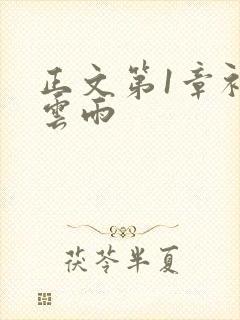 正文第1章初
雲雨
茯苓半夏